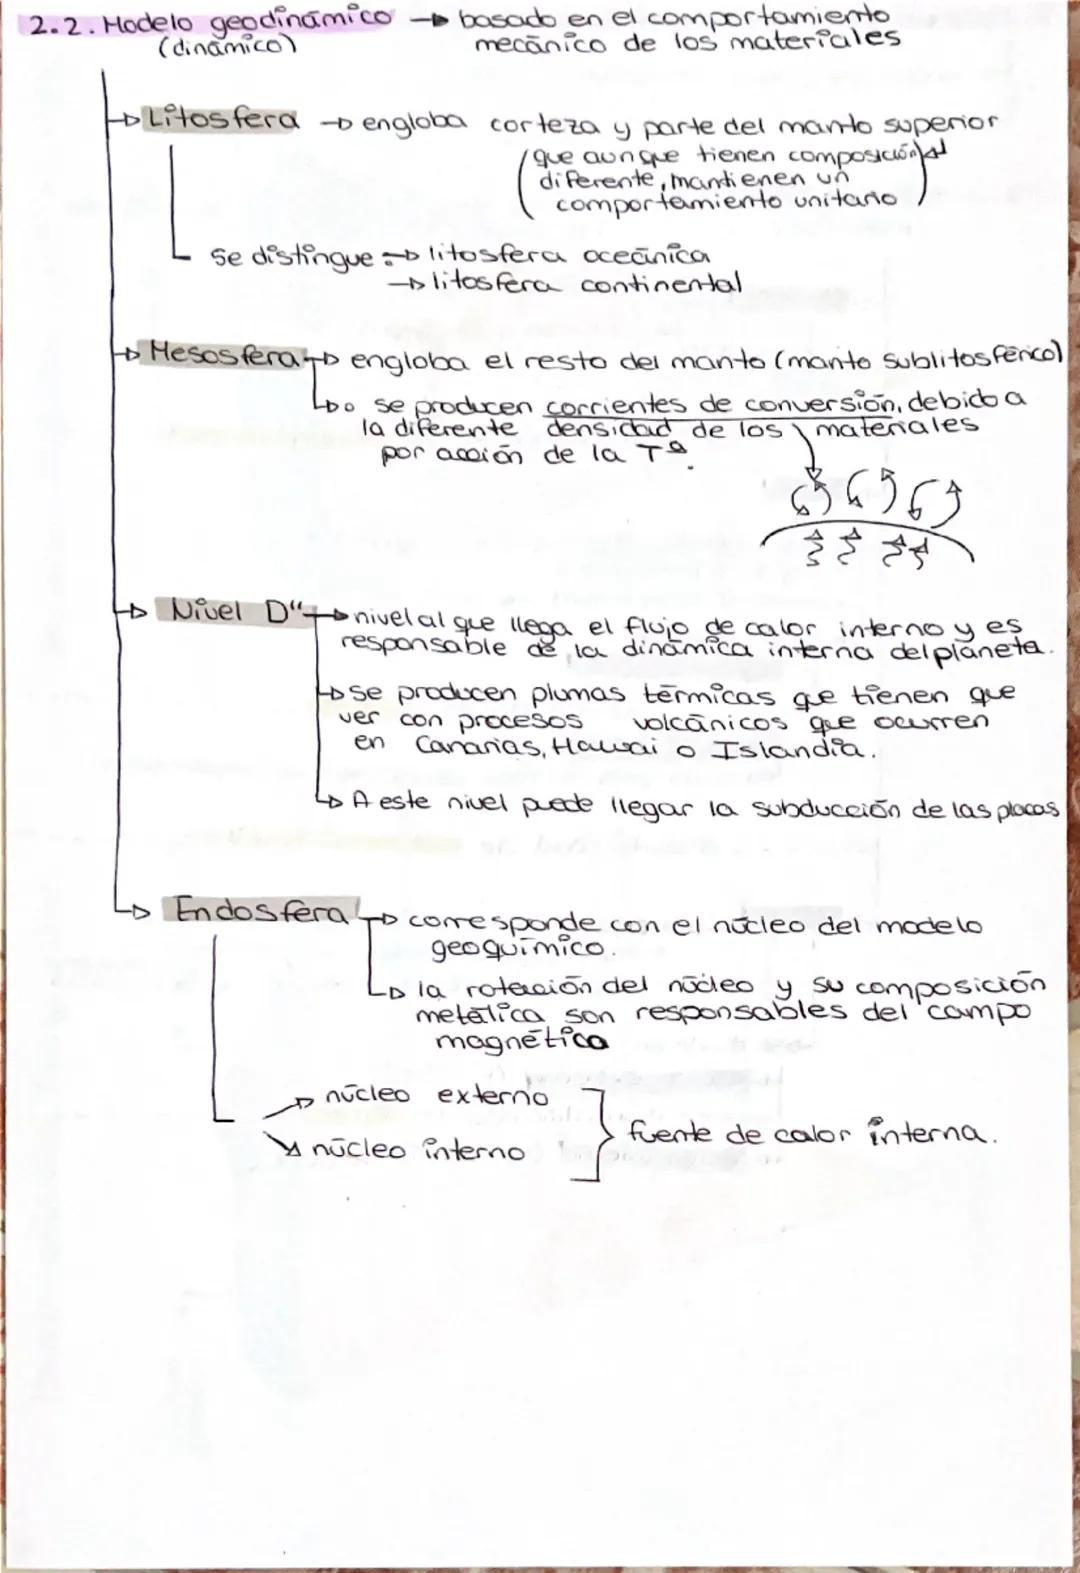 2.2. Modelo geodinámico → basado en el comportamiento
(dinámico) mecánico de los materiales
→ Litosfera → engloba corteza y parte del manto superior
(que aunque tienen composición
diferente, mantienen un
comportamiento unitario)
Se distingue: → litosfera oceánica
→ litosfera continental
→ Mesosfera → engloba el resto del manto (manto sublitosférico)
→ se producen corrientes de conversión, debido a
la diferente densidad de los materiales
por acción de la Tª.
→ Nivel D" → nivel al que llega el flujo de calor interno y es
responsable de la dinámica interna del planeta.
→ Se producen plumas térmicas que tienen que
ver con procesos volcánicos que ocurren
en Canarias, Hawai o Islandia.
→ A este nivel puede llegar la subducción de las placas
→ Endosfera → corresponde con el núcleo del modelo
geoquímico.
→ la rotación del núcleo y su composición
metálica son responsables del campo
magnético
→ núcleo externo
→ núcleo interno } fuente de calor interna.